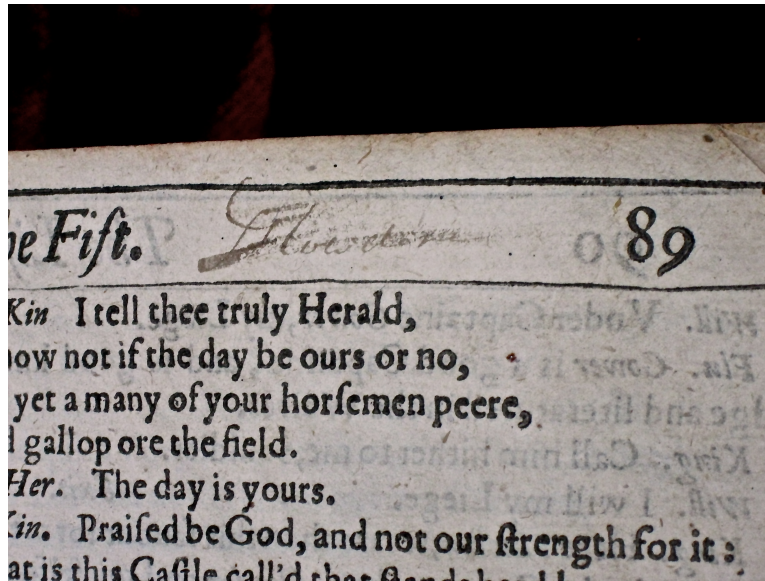 he Fiſt. 89
Kin I tell thee truly Herald,
now not if the day be ours or no,
yet a many of your horſemen peere,
d gallop ore the field.
Her. The day is yours.
Kin. Praiſed be God, and not our ſtrength for it:
at is this Caſtle call'd that ſtands hard